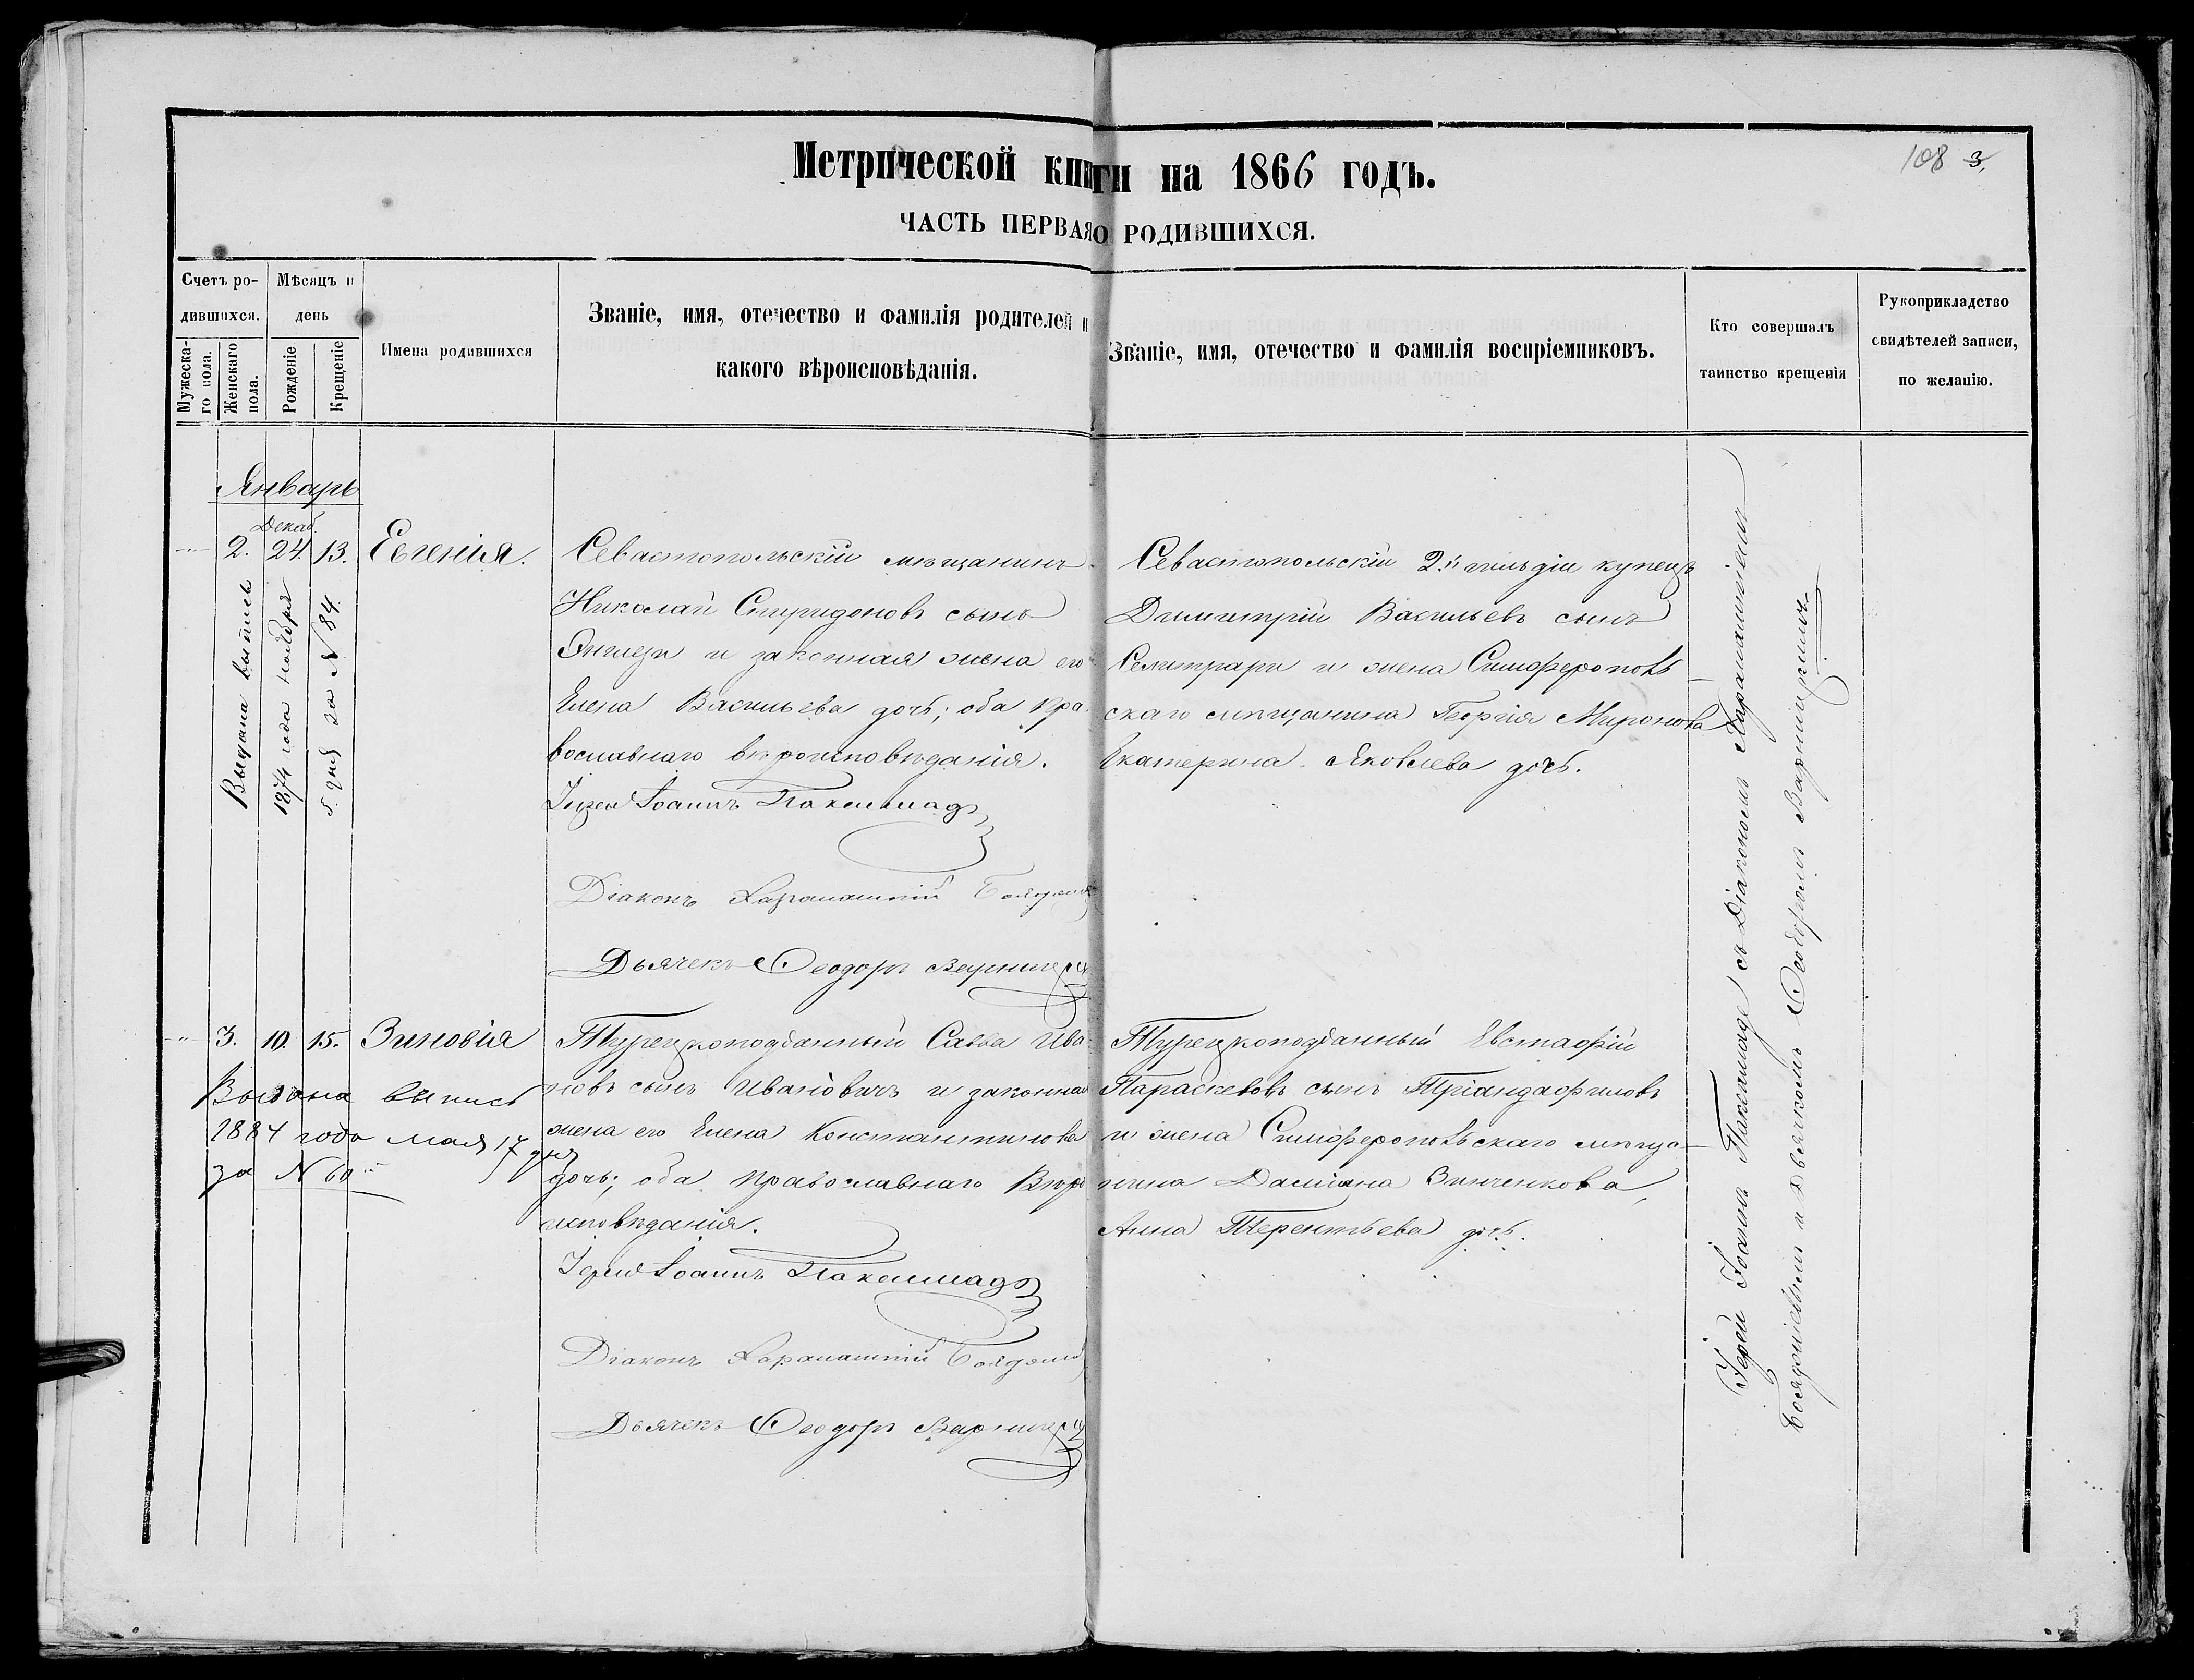 Метрической книги на 1866 годъ.
108 3,
ЧАСТЬ ПЕРВАЯ О РОДИВШИХСЯ.
Счетъ ро-
дившихся.
Мужеска-
го пола.
Женскаго
пола.
Мѣсяцъ и
день
Рожденіе
Крещеніе
Имена родившихся
Званіе, имя, отечество и фамилія родителей и
какого вѣроисповѣданія.
Званіе, имя, отечество и фамилія воспріемниковъ.
Кто совершалъ
таинство крещенія
Рукоприкладство
свидѣтелей записи,
по желанію.
Январь
Декаб.
2. 24. 13. Евгенія.
Выдана выпись
1874 года ноября
5. дня за N 84.
Севастопольскій мѣщанинъ
Николай Спиридоновъ сынъ
и законная жена его
Елена Васильева дочь; оба пра-
вославнаго вѣроисповѣданія.
Іерей Іоаннъ Паксимадъ
Діаконъ Харалампій
Дьячекъ Ѳеодоръ
Севастопольскій 2й гильдіи купецъ
Димитрій Васильевъ сынъ
и жена Симферополь-
скаго мѣщанина Георгія Миронова
Екатерина Яковлева дочь.
3. 10. 15. Зиновія
Выдана выпись
1884 года мая 17 дня
за N 60
Турецкоподданный Савва Ива-
новъ сынъ Ивановичъ и законная
жена его Елена Константинова
дочь; оба православнаго Вѣро
исповѣданія.
Іерей Іоаннъ Паксимадъ
Діаконъ Харалампій
Дьячекъ Ѳеодоръ
Турецкоподданный Евстафій
Параскевовъ сынъ Тріандафиловъ
и жена Симферопольскаго мѣща-
нина Даміана Зинченкова,
Анна Терентьева дочь.
Іерей Іоаннъ Паксимаде съ Діакономъ Харалампіемъ
и Дьячкомъ Ѳеодоромъ